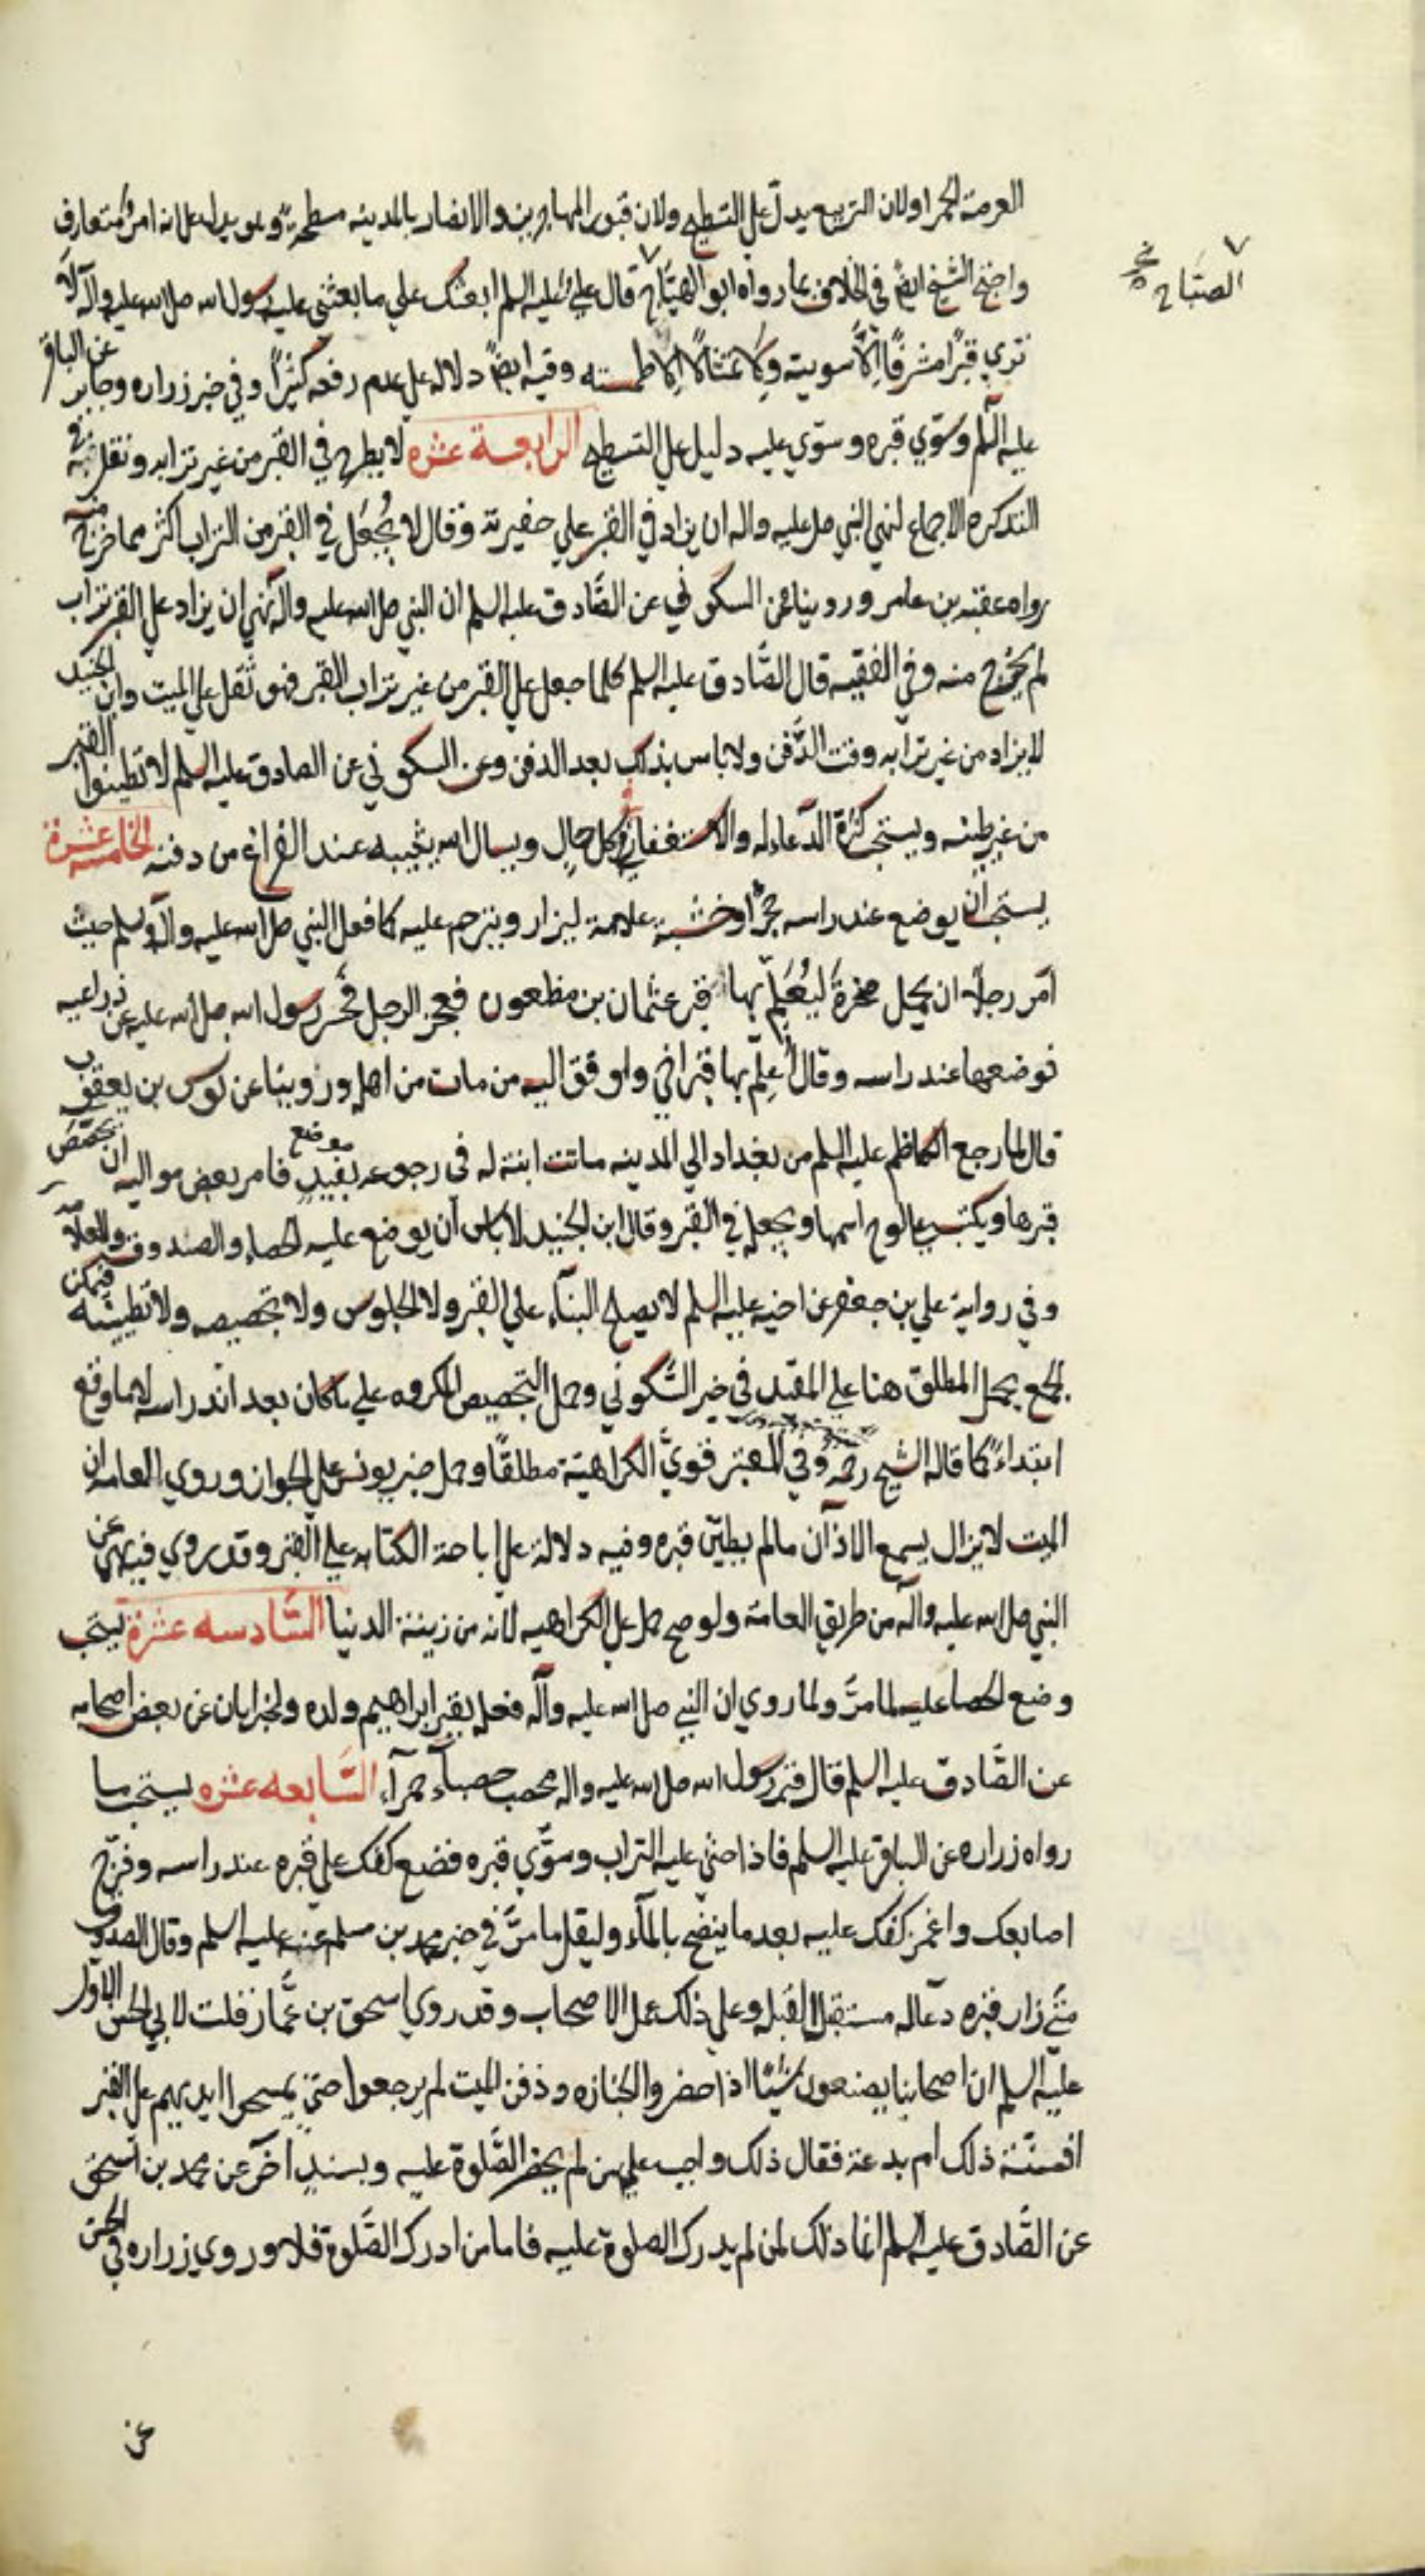 العرصة الحمرا ولان التربيع يدل على التسطيح ولان قبور المهاجرين والانصار بالمدينه مسطحة وهو يدل على انه امر متعارف
واحتج الشيخ ايضً في الخلاف بما رواه ابو الهيّاج قال علي عليه السلم ابعثك على ما بعثني عليه رسول الله صلى الله عليه وآله لا
الصبّاح خ
تري قبرًا مشرفًا الّا سويته ولا تمثالًا الا طمسته وفيه ايضً دلاله على عدم رفعه كثيرًا وفي خبر زراره وجابر عن الباقر
عليه السلم وسوّي قبره وسوّي عليه دليل على التسطيح الرابعة عشره لا يطرح في القبر من غير ترابه ونقل فيه في
التذكره الاجماع لنهي النبي صلى عليه واله ان يزاد في القبر علي حفيرته وقال لا يُجعَل في القبر من التراب اكثر مما خرج منه
رواه عقبة بن عامر وروينا عن السكوني عن الصّادق عليه السلم ان النبي صلى الله عليه وآله نهي ان يزاد على القبر تراب
لم يخرج منه وفي الفقيه قال الصّادق عليه السلم كلما جعل على القبر من غير تراب القبر فهو ثقل على الميت وابن الجنيد
لا يزاد من غير ترابه وقت الدّفن ولا باس بذلك بعد الدفن وعن السكوني عن الصادق عليه السلم لا تطينوا القبر
من غير طينه ويستحب كثرة الدّعاء له والاستغفار في كل حال ويسال الله يثيبه عند الفراغ من دفنه الخامسه عشرة
يستحب ان يوضع عند راسه حجرًا او خشبة علامة ليزار ويترحم عليه كما فعل النبي صلى الله عليه وآله وسلم حيث
امر رجلًا ان يحمل صخرة ليُعَلِّم بها قبر عثمان بن مظعون فعجز الرجل فحسر رسول الله صلى الله عليه عن ذراعيه
فوضعها عند راسه وقال أعلم بها قبر اخي وادفن اليه من مات من اهله وروينا عن يونس بن يعقوب
قال لما رجع الكاظم عليه السلم من بغداد الي المدينه ماتت ابنة له في رجوعه بفيد موضع فامر بعض مواليه ان يجصّص
قبرها ويكتب على لوح اسمها ويجعله في القبر وقال ابن الجنيد لا باس أن يوضع عليه الحصاء والصندوق والعلامة
وفي رواية علي بن جعفر عن اخيه عليه السلم لا يصلح البناء علي القبر ولا الجلوس ولا تجصيصه ولا تطيينه فيمكن
الجمع بحمل المطلق هنا علي المقيد في خبر السّكوني وحمل التجصيص المكروه علي ما كان بعد اندراسه لا ما وقع
ابتداءً كما قاله الشيخ رحمه وفي المعتبر قوّي الكراهيّة مطلقًا وحمل خبر يونس على الجواز وروي العامه ان
الميت لا يزال يسمع الاذآن ما لم يطيّن قبره وفيه دلالة على اباحة الكتابه على القبر وقد روي فيه نهي عن
النبي صلى الله عليه وآله من طريق العامة ولو صح حمل على الكراهيه لانه من زينة الدنيا السّادسه عشرة يستحب
وضع الحصا عليه لما مرّ ولما روي ان النبي صلى الله عليه وآله فعله بقبر ابراهيم ولده ولخبر ابان عن بعض اصحابه
عن الصّادق عليه السلم قال قبر رسول الله صلى الله عليه واله محصب حصباء حمرآء السّابعه عشره يستحب ما
رواه زراره عن الباقر عليه السلم فاذا حثي عليه التراب وسوّي قبره فضع كفك علي قبره عند راسه وفرّج
اصابعك واغمز كفك عليه بعد ما ينضح بالمآء وليقل ما مرّ في خبر محمد بن مسلم عنه عليه السلم وقال الصدوق
متي زار قبره دعا له مستقبل القبله وعلي ذلك عمل الاصحاب وقد روي اسحق بن عمّار قلت لابي الحسن الاول
عليه السلم ان اصحابنا يصنعون شيئًا اذا حضروا الجنازه ودفن الميت لم يرجعوا حتي يمسحوا ايديهم على القبر
افسنّة ذلك ام بدعة فقال ذلك واجب علي من لم يحضر الصّلوة عليه وبسند آخر عن محمد بن اسحق
عن الصّادق عليه السلم انما ذلك لمن لم يدرك الصلوة عليه فاما من ادرك الصّلوة فلا وروي زراره في الحسن
عن